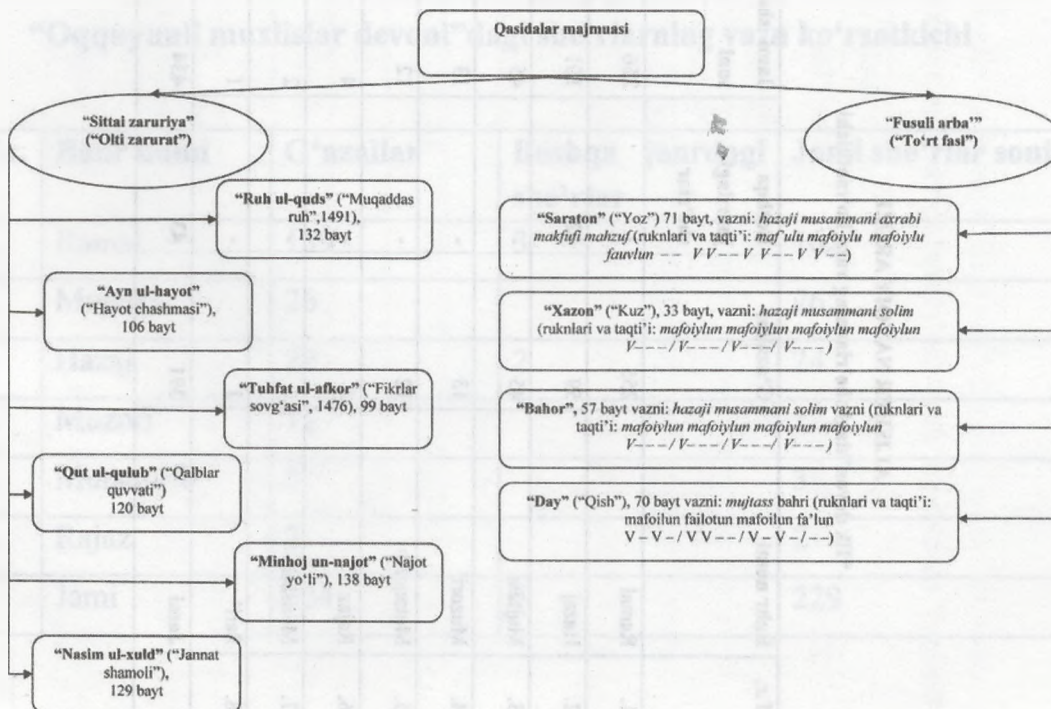 Qasidalar majmuasi
“Sittai zaruriya”
(“Olti zarurat”)
“Ruh ul-quds” (“Muqaddas
ruh”,1491),
132 bayt
“Ayn ul-hayot”
(“Hayot chashmasi”),
106 bayt
“Tuhfat ul-afkor” (“Fikrlar
sovg‘asi”, 1476), 99 bayt
“Qut ul-qulub” (“Qalblar
quvvati”)
120 bayt
“Minhoj un-najot” (“Najot
yo‘li”), 138 bayt
“Nasim ul-xuld” (“Jannat
shamoli”),
129 bayt
“Fusuli arba’”
(“To‘rt fasl”)
“Saraton” (“Yoz”) 71 bayt, vazni: hazaji musammani axrabi
makfufi mahzuf (ruknlari va taqti’i: maf’ulu mafoiylu mafoiylu
fauvlun – – V V – – V V – – V V – –)
“Xazon” (“Kuz”), 33 bayt, vazni: hazaji musammani solim
(ruknlari va taqti’i: mafoiylun mafoiylun mafoiylun mafoiylun
V – – – / V – – – / V – – – / V – – –)
“Bahor”, 57 bayt vazni: hazaji musammani solim vazni (ruknlari va
taqti’i: mafoiylun mafoiylun mafoiylun mafoiylun
V – – – / V – – – / V – – – / V – – –)
“Day” (“Qish”), 70 bayt vazni: mujtass bahri (ruknlari va taqti’i:
mafoilun failotun mafoilun fa’lun
V – V – / V V – – / V – V – / – –)